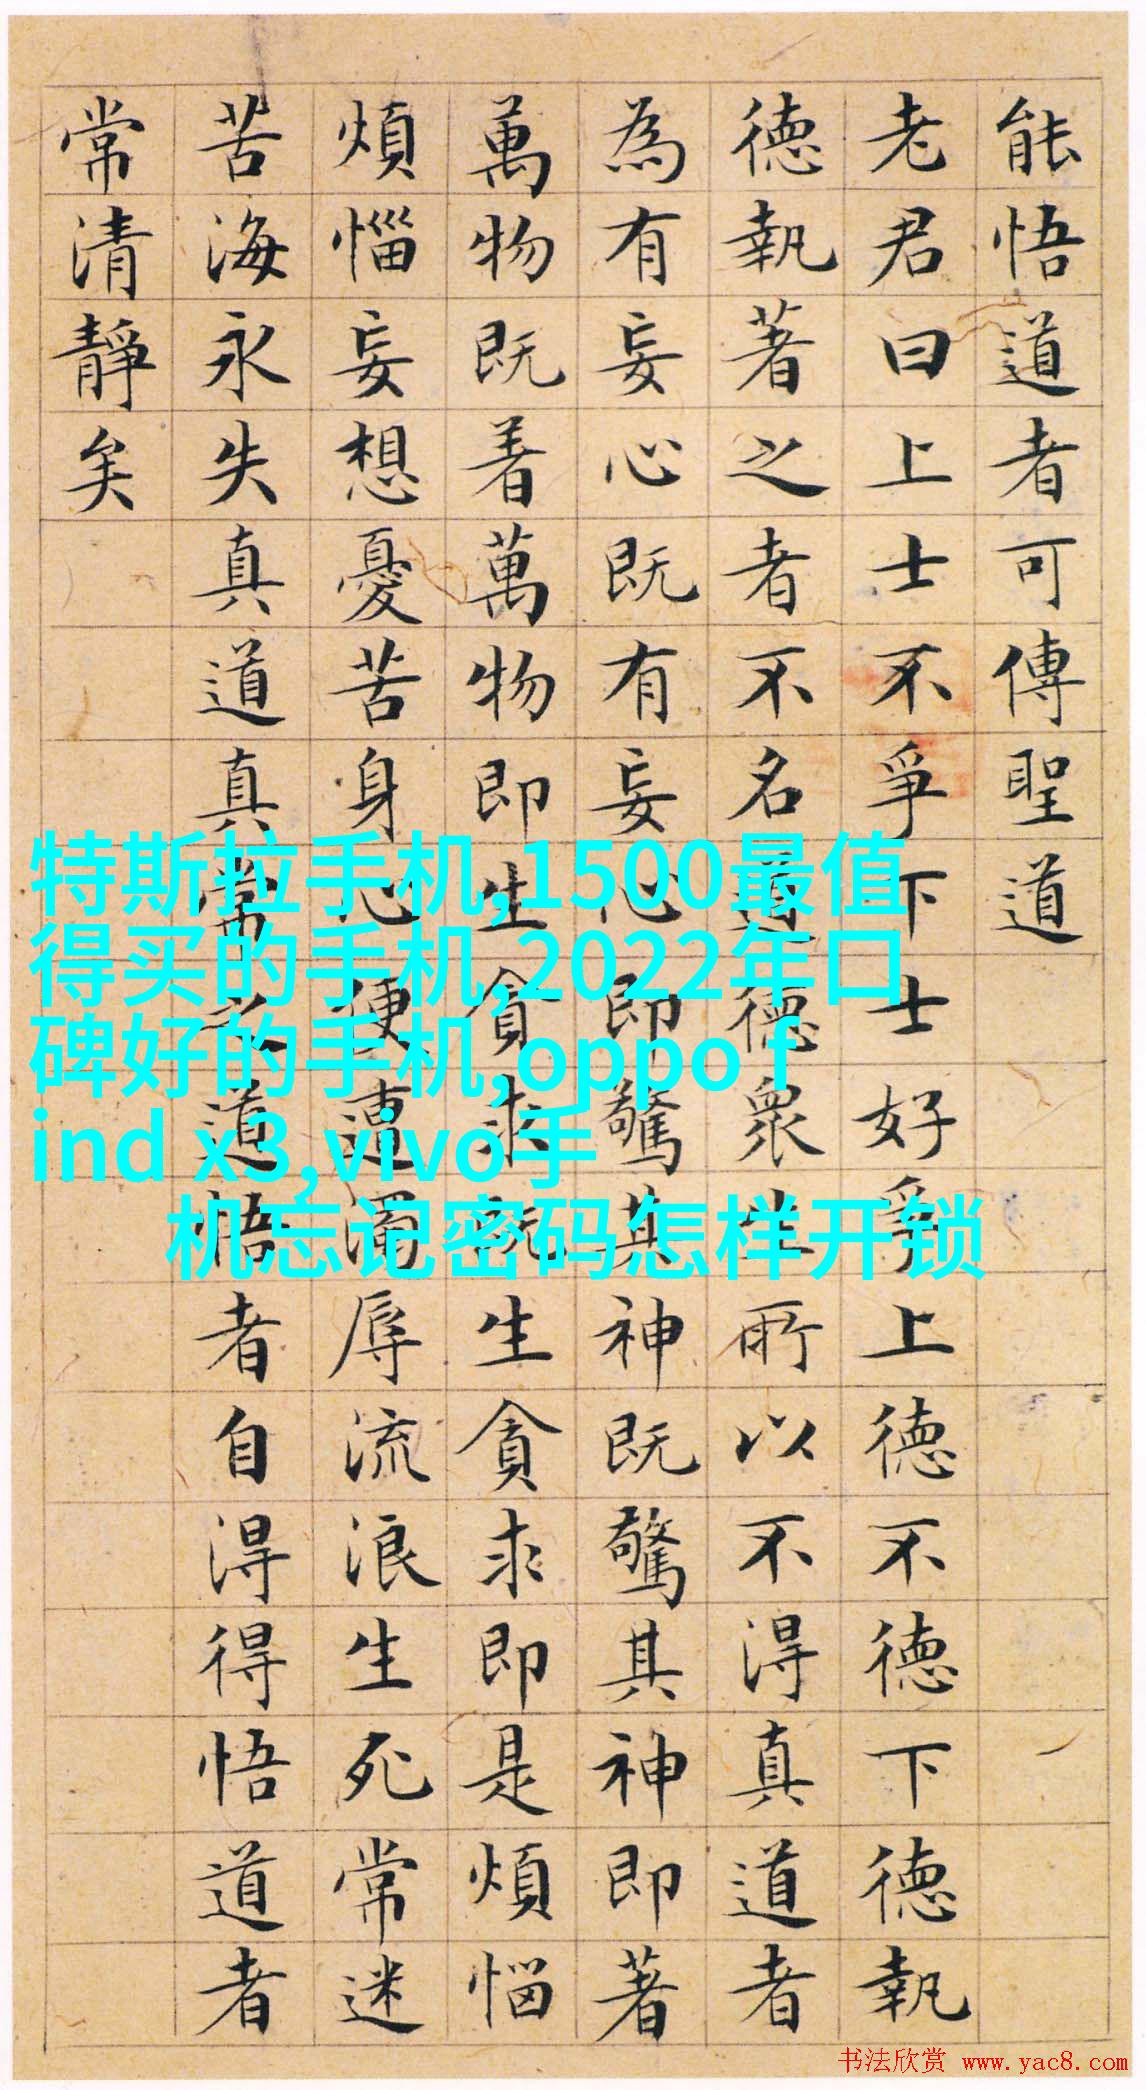 能悟道者可傳聖道
老君曰上士不爭下士好爭上德不德下德執
德執著之者不名道德衆生所以不淂真道者
為有妄心既有妄心即驚其神既驚其神即著
萬物既着萬物即生貪求既生貪求即是煩惱
煩惱妄想憂苦身心便遭濁辱流浪生死常迷
苦海永失真道真常之道悟者自淂得悟道者
常清靜矣
特斯拉手机,1500最值
得买的手机,2022年口
碑好的手机,oppo f
ind x3,vivo手
机忘记密码怎样开锁
书法欣赏 www.yac8.com